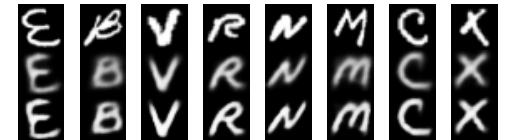 E B V R N M C X
E B V R N m C X
E B V R N m C X